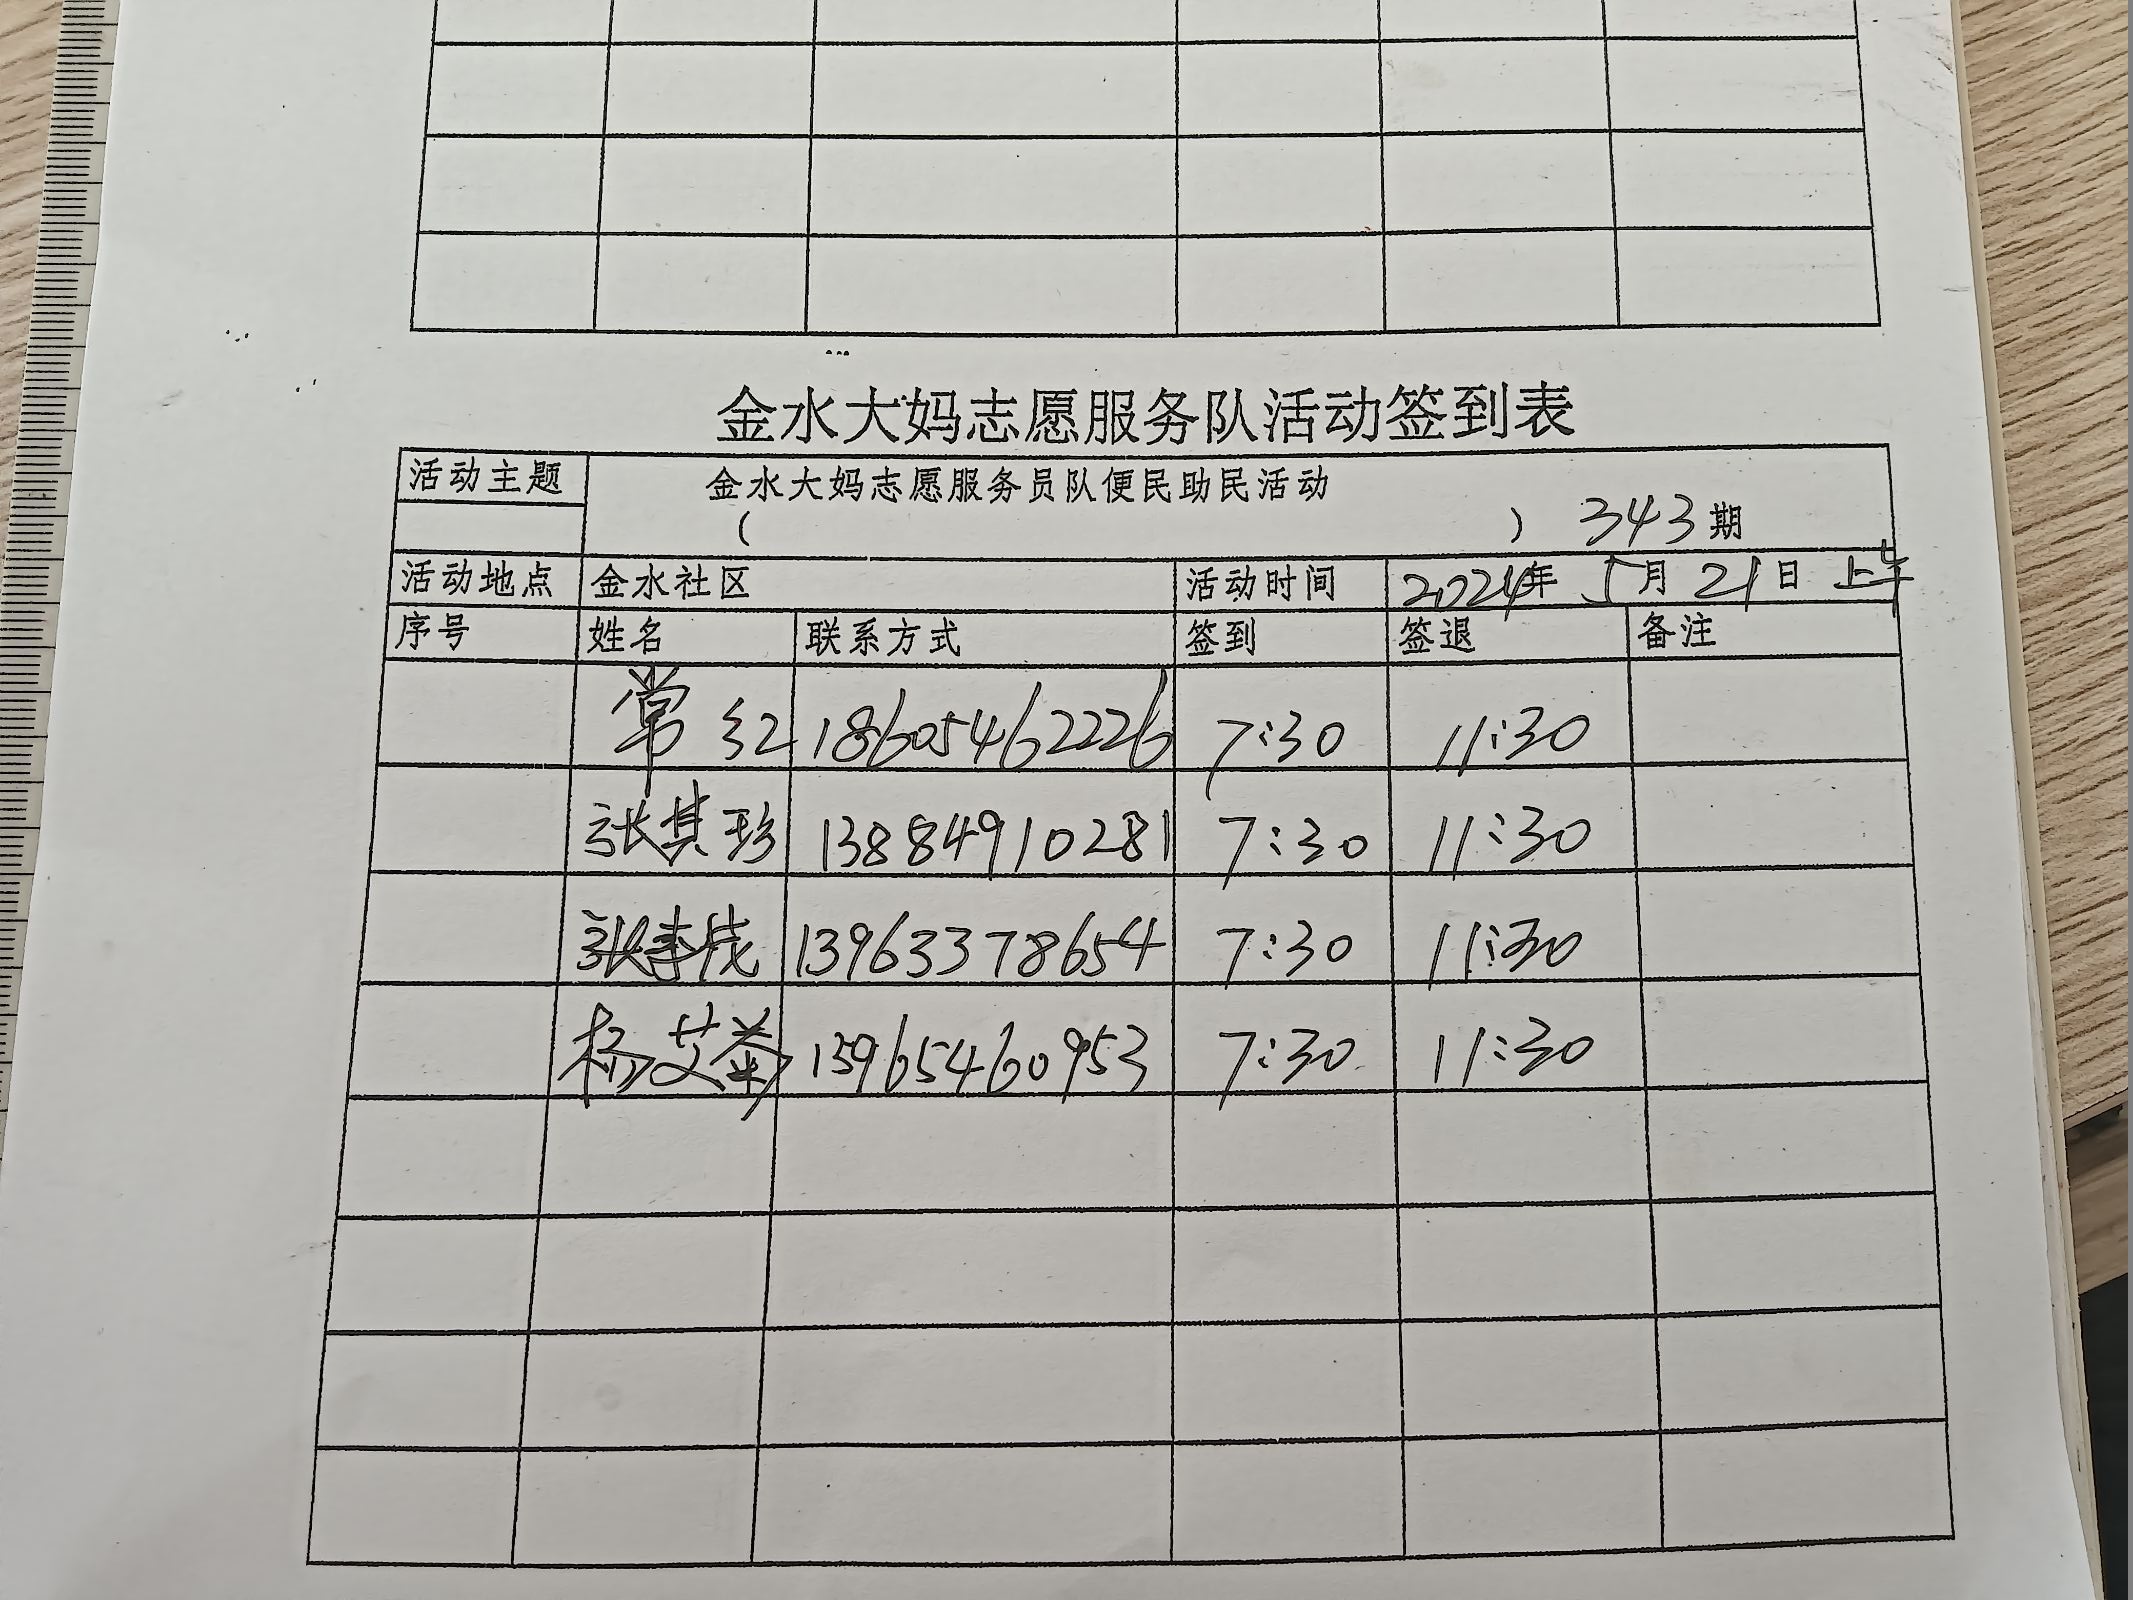 金水大妈志愿服务队活动签到表
活动主题 金水大妈志愿服务员队便民助民活动
( ) 343期
活动地点 金水社区 活动时间 2024年 5月21日 上午
序号 姓名 联系方式 签到 签退 备注
常红 18605462226 7:30 11:30
张其珍 13884910281 7:30 11:30
张 13963378654 7:30 11:30
杨艾菊 13965460953 7:30 11:30